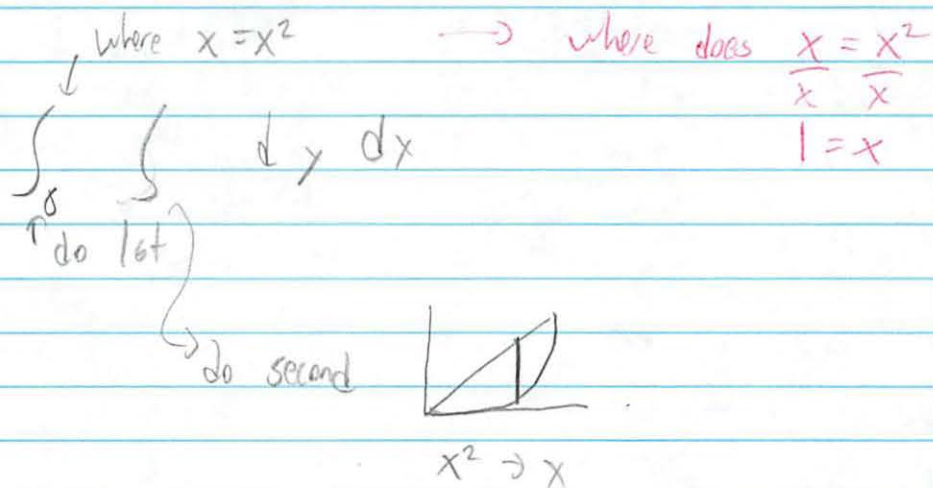 where x = x² → where does x = x²
x x
1 = x
∫ ∫ dy dx
0
do 1st
do second
x² → x